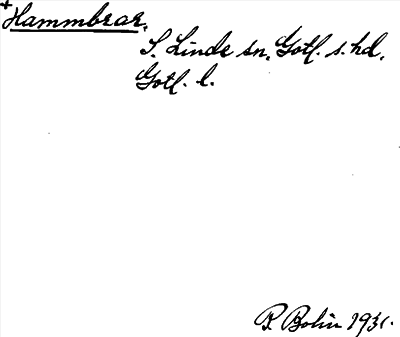 +Hammbrar.
S. Linde sn. Gotl. s. hd.
Gotl. l.
P. Bolin 1931.